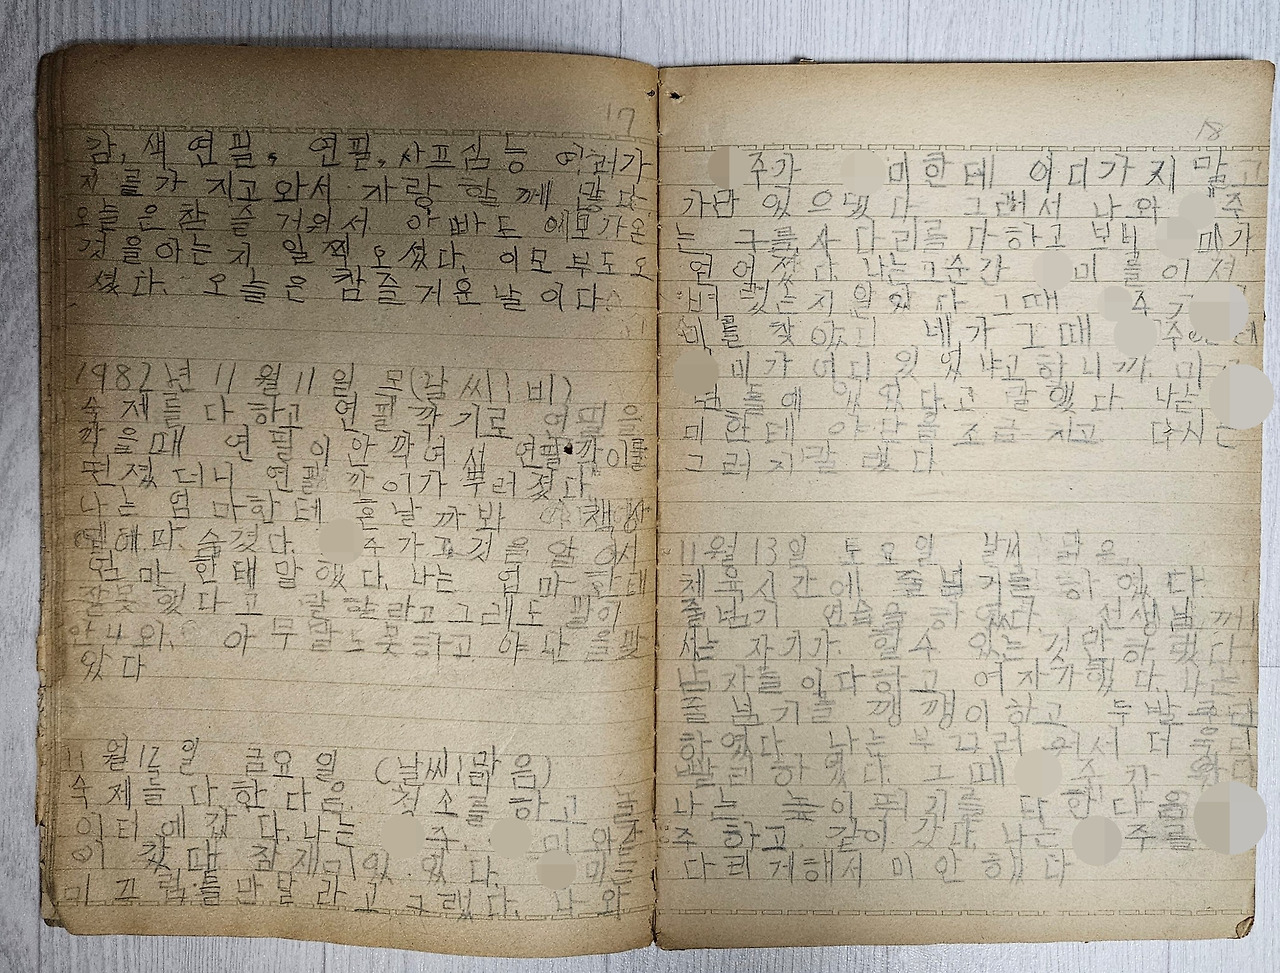 17
감, 색 연필, 연필, 사프심 등 여러가
지 를가 지고와서 자랑 할 께 많다.
오늘은참 즐 거워서 아빠도 이모가온
것을아는지 일찍오셨다. 이모부도오
셨다. 오늘은 참즐거운날이다.
1982년 11월11일 모(날씨¦비)
숙제를다하고 연필깍기로 연필을
깍을때 연필이안깍여서 연필깍이를
던졌더니 연필깍이가뿌러졌다
나는 엄마한테 혼날까봐 책상
밑에다. 숨겼다. 주가그것을알아서
엄마한태말했다. 나는 엄마한테
잘못했다고 말할라고그래도 말이
안나와. 아무말도못하고 야단을맞
았다
11월12일 금요일 (날씨¦맑음)
숙제를다한다음. 청소를하고 놀
이터에갔다. 나는 주 미와
이 갔다 참재미있었다. 미는
미끄럼를만달라고그랬다. 나와
18
주가 미한테 어디가지말고
가만있으랬다 그래서 나와 주
는 구름사다리를다하고보니 미가
었다. 나는그순간 미를
그때 주
찾았 네가그때 주
미가어디있었냐고하니까. 미
들에 있었다.고 말했다. 나는
미한테 야단을조금치고 다시는
그러지말랬다.
11월13일 토요일 날씨¦맑은
체육시간에 줄넘기를하였다
줄넘기 연습을하였다 선생님께
서는 자기가. 할수있는것만하랬다.
남자들이다하고 여자가했다. 나는
줄넘기를깽깽이하고 두발
하였다. 나는부끄러워서더
하였다. 그때 주가 왔다
나는 높이뛰기를 또한다음
주하고. 같이갔다. 나는 주를
다리게해서미안했다